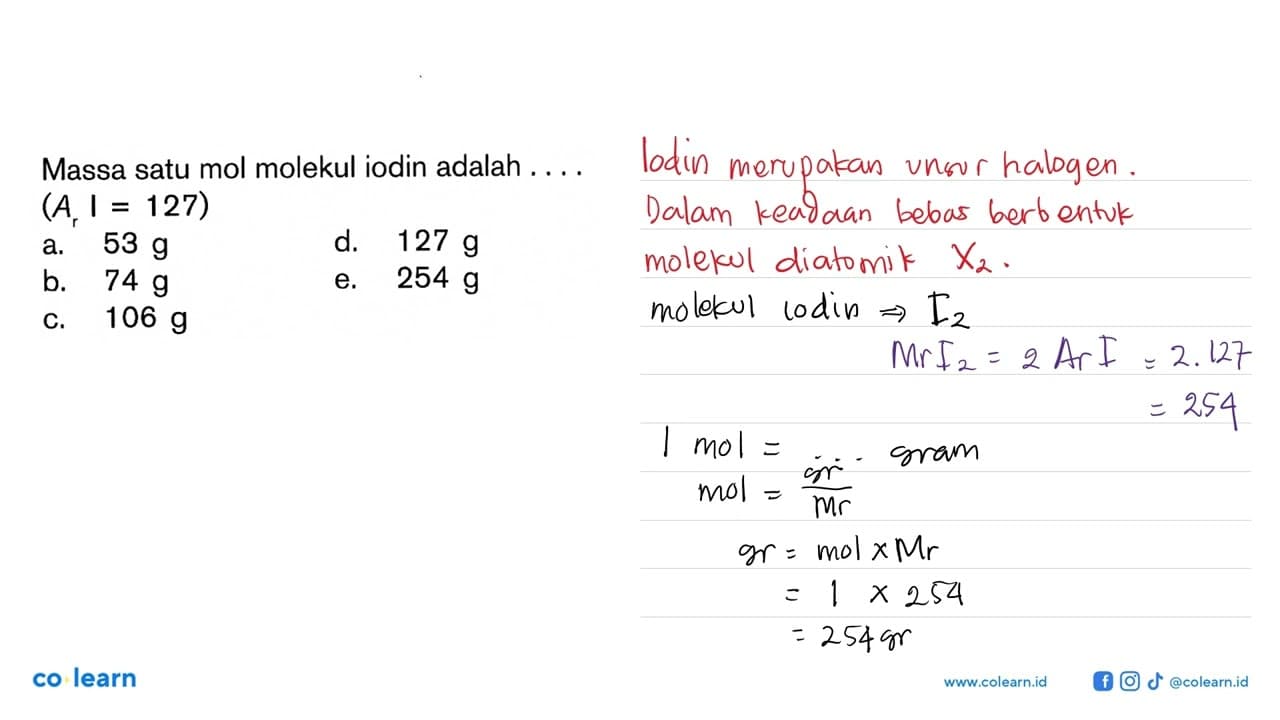 Massa satu mol molekul iodin adalah . . . .
(Ar I = 127)
a. 53 g
b. 74 g
c. 106 g
d. 127 g
e. 254 g
Iodin merupakan unsur halogen.
Dalam keadaan bebas berbentuk
molekul diatomik X₂.
molekul iodin ⇒ I₂
Mr I₂ = 2 Ar I = 2.127
= 254
1 mol = ... gram
mol = gr/Mr
gr = mol x Mr
= 1 x 254
= 254 gr
co learn
www.colearn.id
@colearn.id